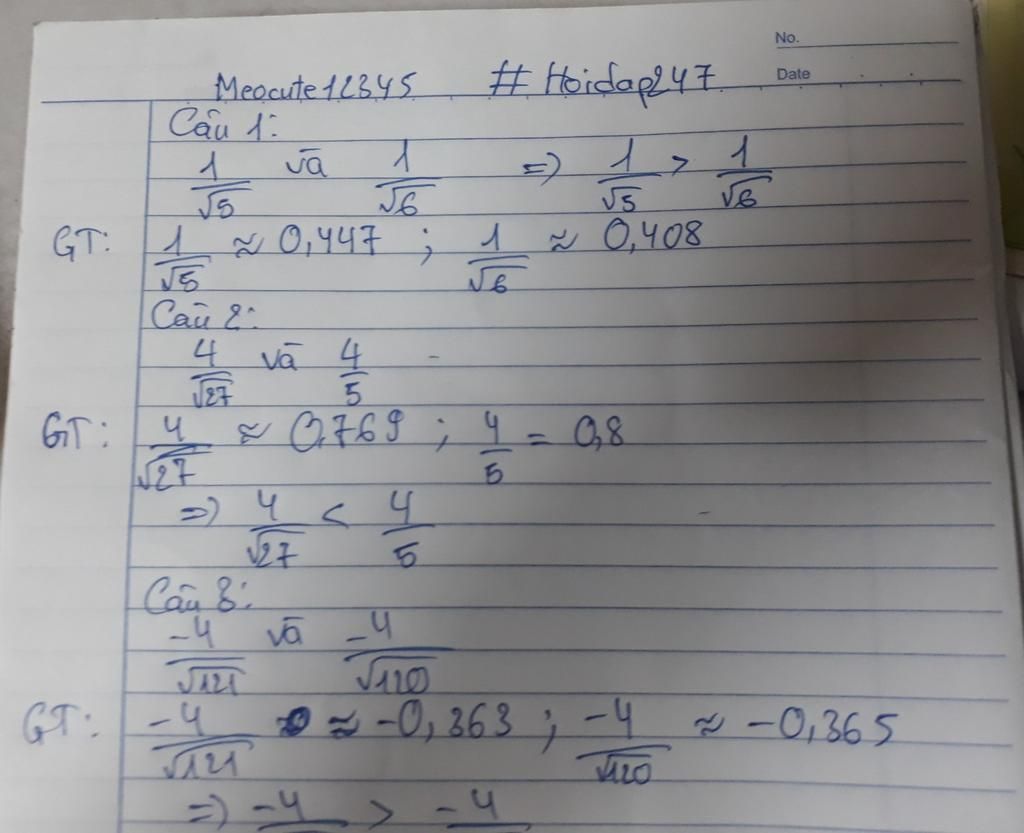 No.
Date
Meocute12345 #Hoidap247
Câu 1:
1/√5 và 1/√6 => 1/√5 > 1/√6
GT: 1/√5 ≈ 0,447 ; 1/√6 ≈ 0,408
Câu 2:
4/√27 và 4/5
GT: 4/√27 ≈ 0,769 ; 4/5 = 0,8
=> 4/√27 < 4/5
Câu 3:
-4/√121 và -4/√120
GT: -4/√121 ≈ -0,363 ; -4/√120 ≈ -0,365
=> -4 > -4